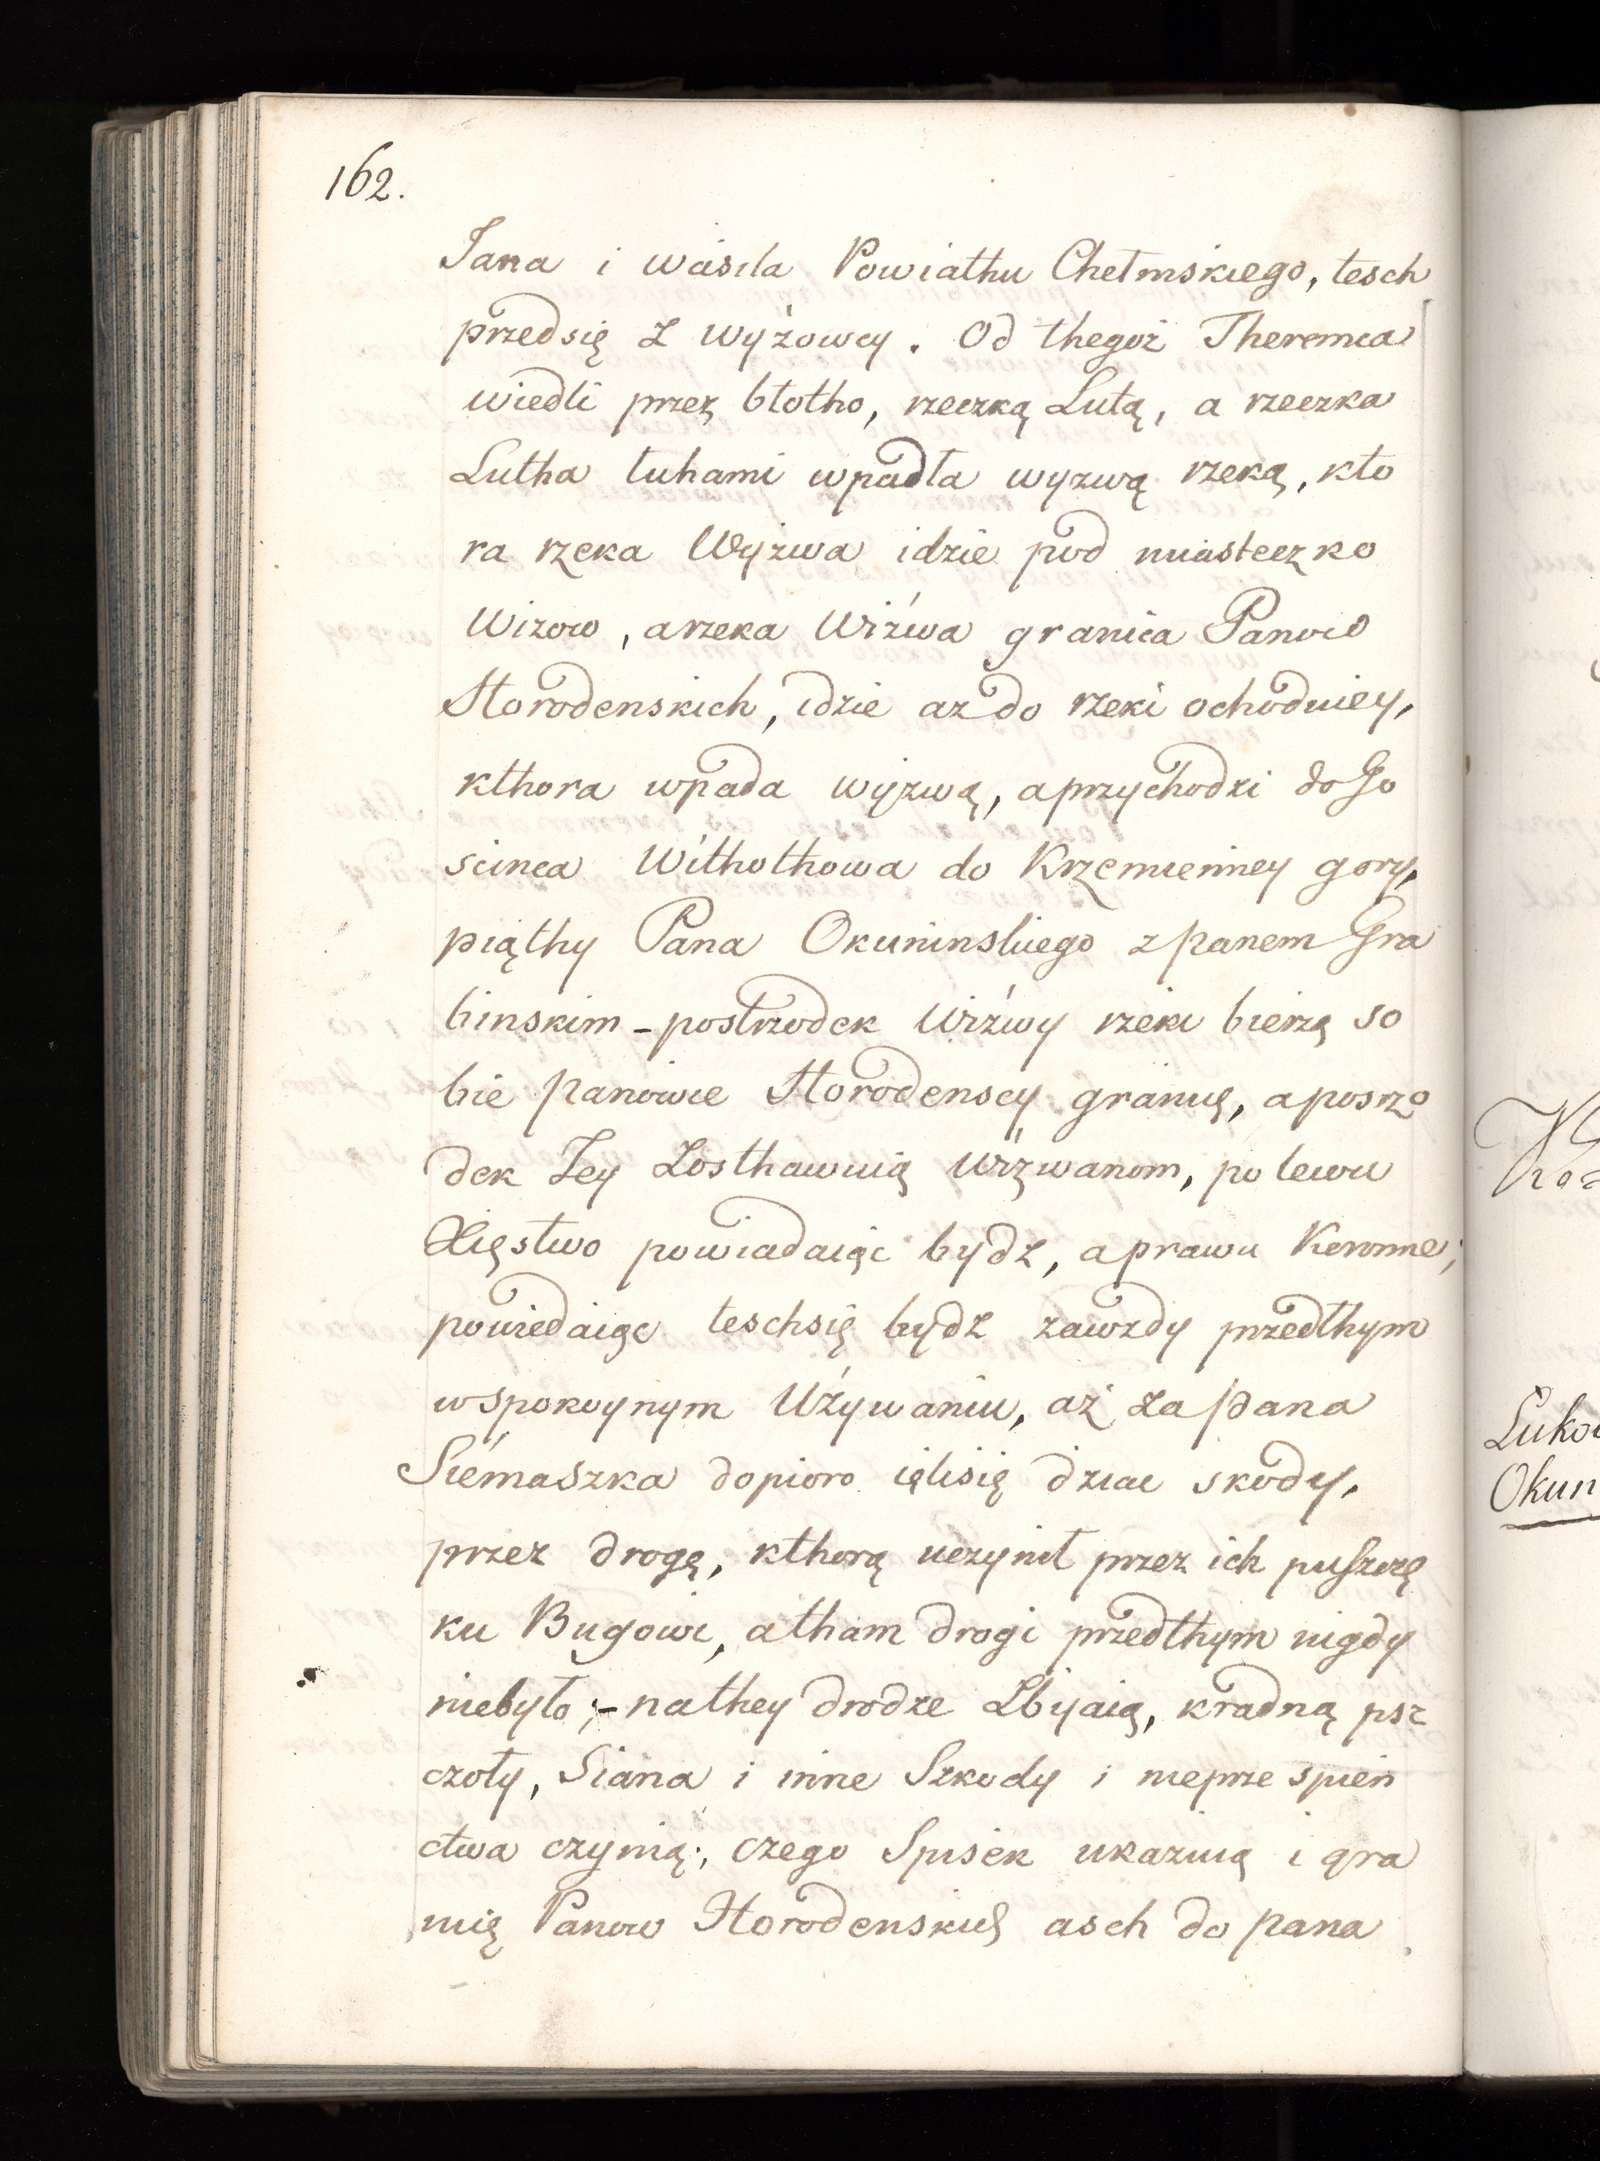 162.
Jana i wasila Powiathu Chełmskiego, tesch
przedsię z wyżowcy. Od thegoż Theremca
wiedli przez błotho, rzeczką Lutą, a rzeczka
Lutha łuhami wpadła wyzwą rzeką, kto
ra rzeka Wyżwa idzie pod miasteczko
Wizow, arzeka Wiźwa granica Panow
Horodenskich, idzie az do rzeki ochodniey,
kthora wpada wyzwą, aprzychodzi do Go
scinca Withothowa do Krzemienney gory,
piąthy Pana Okuninskiego z panem Gra
binskim - postrzodek Wiźwy rzeki bierzą so
bie panowie Horodenscy granicę, aposrzo
dek Jey Zosthawuią Wiżwanom, po lewu
Xięstwo powiadaiąc bydz, aprawu Koronne;
powiedaiąc teschsię bydz zawzdy przedthym
wspokoynym Używaniu, aż za pana
Siemaszka dopioro ięlisię dziac skody,
przez drogę, kthorą uczynił przez ich puszczę
ku Bugowi, atham drogi przedthym nigdy
niebyło; - nathey drodze Zbijaią, kradną psz
czoły, Siana i inne Szkody i nieprze spien
ctwa czynią; czego Spisek ukazuią i gra
nię Panow Horodenskich asch do pana
Luko
Okun